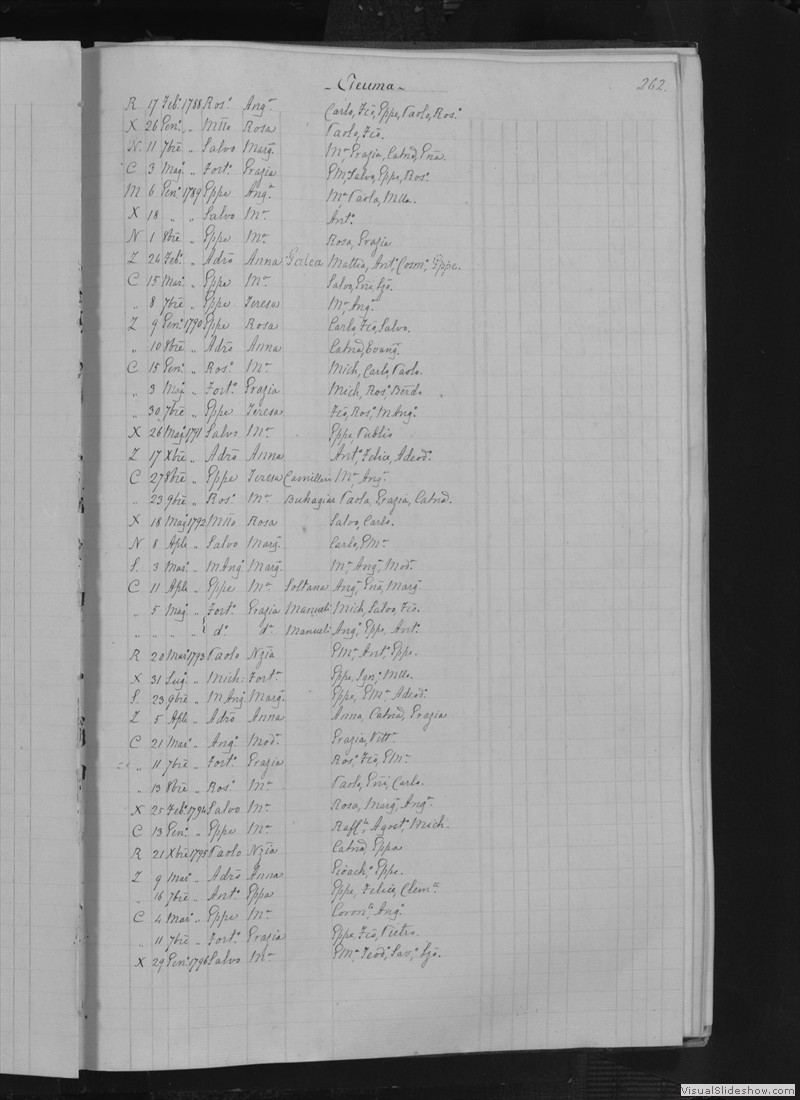 - Cieuma - 262.
R 17 Feb.o 1788 Ros.o Ang.a Carlo, Fco, Eppe, Paolo, Ros.o
X 26 Gen.o „ Mtto Rosa Paolo, Fco.
N 11 7bre „ Salvo Marg.a M.a Grazia, Catnd, Ena.
C 3 Mag. „ Fort.o Grazia EM, Salvo, Eppe, Ros.o
M 6 Gen.o 1789 Eppe Ang.a M.a Paola, Mtta.
X 18 „ „ Salvo M.a Ant.o
N 1 8bre „ Eppe M.a Rosa, Grazia
Z 24 Feb.o „ Adro Anna Galea Mattia, Ant.o Cosm.o Eppe.
C 15 Mar. „ Eppe M.a Salvo, Ene, Gjo.
„ 8 7bre „ Eppe Teresa M.a Ang.a
Z 9 Gen.o 1790 Eppe Rosa Carlo, Fco, Salvo.
„ 10 8bre „ Adro Anna Catnd, Evang.
C 15 Gen.o „ Ros.o M.a Mich, Carlo, Paolo.
„ 3 Mag „ Fort.o Grazia Mich, Ros.o Berdo
„ 30 7bre „ Eppe Teresa Fco, Ros.o M Ang.o
X 26 Mag 1791 Salvo M.a Eppe Publio
Z 17 Xbre „ Adro Anna Ant.o Felice, Adeod.o
C 27 8bre „ Eppe Teresa Camilleri M.a Ang.a
„ 23 9bre „ Ros.o M.a Buhagiar Paola, Grazia, Catnd.
X 18 Mag 1792 Mtto Rosa Salvo, Carlo.
N 8 Aple „ Salvo Marg. Carlo, EM.a
S. 3 Mar. „ M Ang. Marg. M.a Ang.a Mod.a
C 11 Aple „ Eppe M.a Soltana Ang.a Ena, Marg.
„ 5 Mag. „ Fort.o Grazia Manueli Mich, Salvo, Fco.
„ „ „ „ { d.o d.o Manueli Ang.o Eppe, Ant.o
R 20 Mar 1793 Paolo Nzia EM.a Ant.o Eppe.
X 31 Lug. „ Mich: Fort.a Eppe, Ign.o Mtto.
S. 23 9bre „ M Ang Marg. Eppe, EM.e Adeod.o
Z 5 Aple „ Adro Anna Anna, Catnd, Grazia
C 21 Mar. „ Ang.o Mod.a Grazia, Vitt.a
„ 11 7bre „ Fort.o Grazia Ros.o Fco, EM.e
„ 13 8bre „ Ros.o M.a Paolo, Ene, Carlo.
X 25 Feb.o 1794 Salvo M.a Rosa, Marg, Ang.a
C 13 Gen.o „ Eppe M.a Raff.le Agost.o Mich.
R 21 Xbre 1795 Paolo Nzia Catnd, Eppa
Z 9 Mar. „ Adro Anna Gioach.o Eppe.
„ 16 7bre „ Ant.o Eppa Eppe, Felice, Clem.te
C 4 Mar. „ Eppe M.a Coron.ta Ang.a
„ 11 7bre „ Fort.o Grazia Eppe, Fco, Pietro.
X 29 Gen.o 1796 Salvo M.a EM.e Teod.o Sav.o Gjo.
VisualSlideshow.com